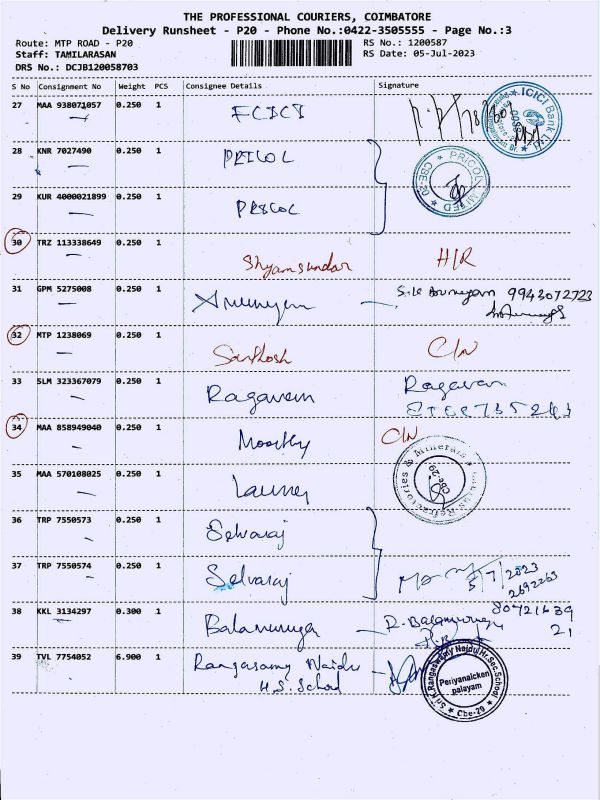 THE PROFESSIONAL COURIERS, COIMBATORE
Delivery Runsheet - P20 - Phone No.:0422-3505555 - Page No.:3
Route: MTP ROAD - P20 RS No.: 1200587
Staff: TAMILARASAN RS Date: 05-Jul-2023
DRS No.: DCJB120058703
S No Consignment No Weight PCS Consignee Details Signature
27 MAA 938071057 0.250 1
ICICI Bank Ltd
28 KNR 7027490 0.250 1 PRICOL
PRICOL LIMITED CBE-20
29 KUR 4000021899 0.250 1 PRICOL
30 TRZ 113338649 0.250 1 Shyamsundar H/R
31 GPM 5275008 0.250 1 9943072723
32 MTP 1238069 0.250 1 Santhosh C/N
33 SLM 323367079 0.250 1 Ragavan Ragavan
34 MAA 858949040 0.250 1 Moorthy C/N
35 MAA 570108025 0.250 1
Refractories & Minerals Cbe-29
36 TRP 7550573 0.250 1 Selvaraj
37 TRP 7550574 0.250 1 Selvaraj 5/7/2023
2692263
38 KKL 3134297 0.300 1 Balamurugan R. Balamurugan
39 TVL 7754052 6.900 1 Rangasamy Naidu
H.S. School
Sri K.Rangaswamy Naidu Hr.Sec.School
Periyanaicken
palayam
Cbe-20